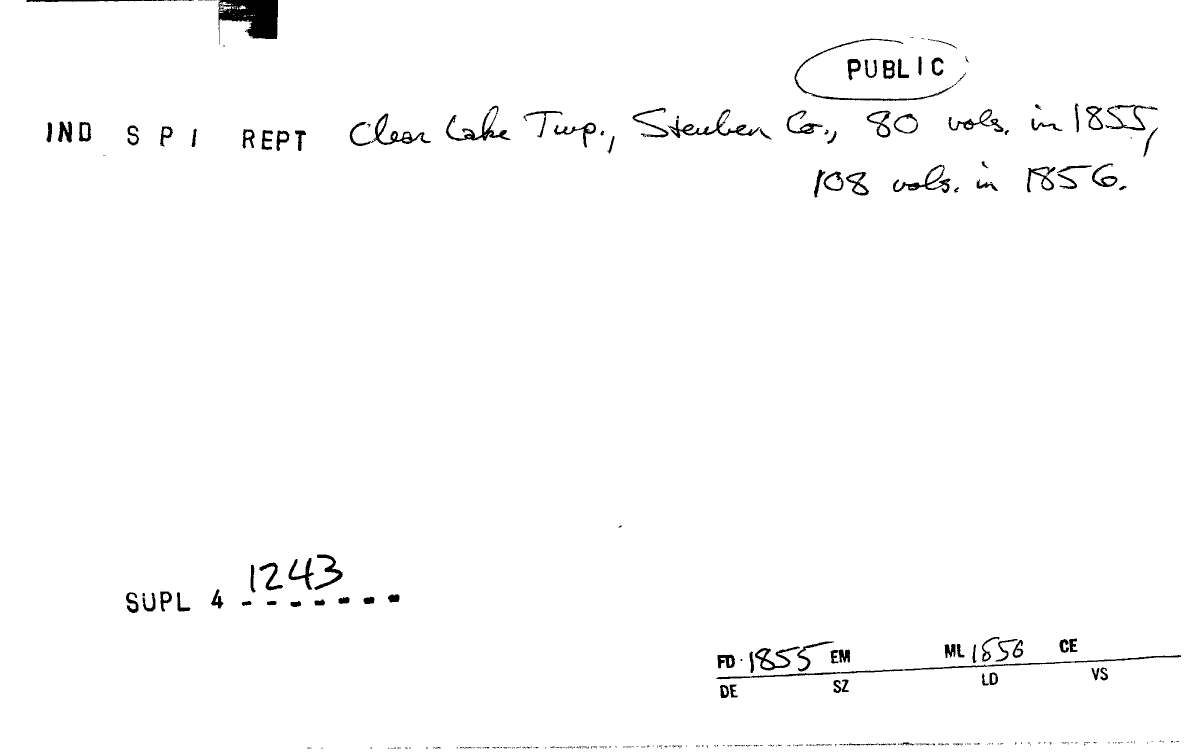 PUBLIC
IND S P I REPT Clear Lake Twp., Steuben Co., 80 vols. in 1855,
108 vols. in 1856.
SUPL 4 1243
FD 1855 EM ML 1856 CE
DE SZ LD VS